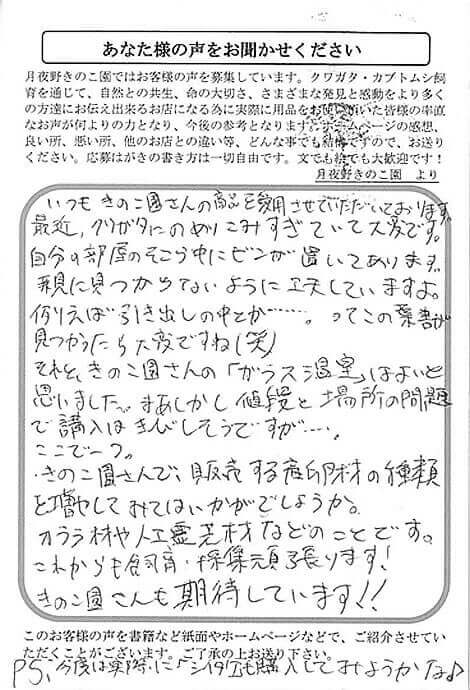 あなた様の声をお聞かせください
月夜野きのこ園ではお客様の声を募集しています。クワガタ・カブトムシ飼
育を通じて、自然との共生、命の大切さ、さまざまな発見と感動をより多く
の方達にお伝え出来るお店になる為に実際に用品をお使いいただいた皆様の率直
なお声が何よりの力となり、今後の参考となります。ホームページの感想、
良い所、悪い所、他のお店との違い等、どんな事でも結構ですので、お送り
ください。応募はがきの書き方は一切自由です。文でも絵でも大歓迎です！
月夜野きのこ園 より
いつもきのこ園さんの商品を愛用させていただいております。
最近、クワガタにのめりこみすぎていて大変です。
自分の部屋のそこら中にビンが置いてあります。
親に見つからないように工夫していますよ。
例えば引き出しの中とか……。ってこの葉書が
見つかったら大変ですね(笑)
それと、きのこ園さんの「ガラス温室」はよいと
思いました。まあしかし値段と場所の問題
で購入はきびしそうですが…。
ここで一つ。
きのこ園さんで、販売する産卵材の種類
を増やしてみてはいかがでしょうか。
カワラ材や人工霊芝材などのことです。
これからも飼育・採集頑張ります！
きのこ園さんも期待しています！！
このお客様の声を書籍など紙面やホームページなどで、ご紹介させていた
だくことがございます。ご了承の上お送り下さい。
PS、今度は実際に「シイタケも購入してみようかな♪